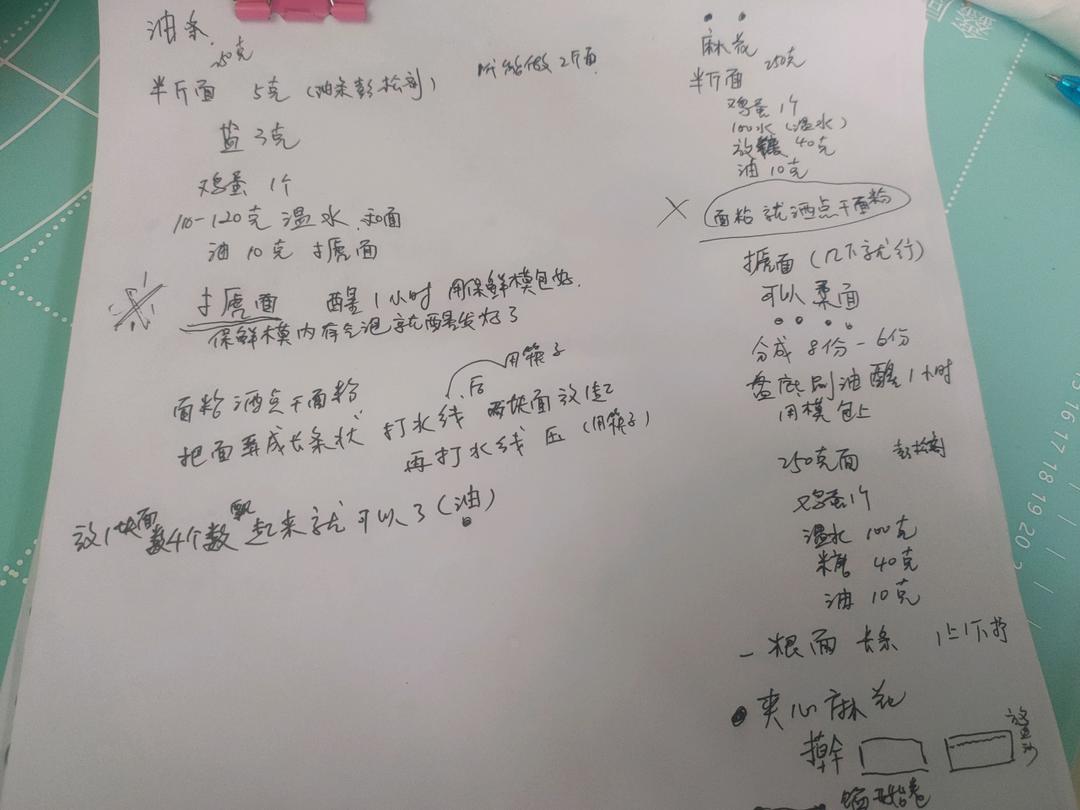 油条
250克
半斤面 5克（油条彭松剂）
做2斤面
盐3克
鸡蛋1个
110-120克温水 和面
油10克 扌虎面
扌虎面 醒1小时 用保鲜模包好.
保鲜模内有气泡就醒发好了
面粘洒点干面粉
用筷子
把面弄成长条状 打水线 后 两块面放起
再打水线 压（用筷子）
放1块面 数4个数 飘起来就可以了（油）
麻花
半斤面 250克
鸡蛋1个
100水（温水）
放糖 40克
油10克
面粘就洒点干面粉
扌虎面（几下就行）
可以 面
分成8份-6份
盘底刷油醒1小时
用模包上
250克面 彭松剂
鸡蛋1个
温水100克
糖 40克
油10克
一根面 长条 1上1下拧
夹心麻花
擀
放豆沙
16 17 18 19 20